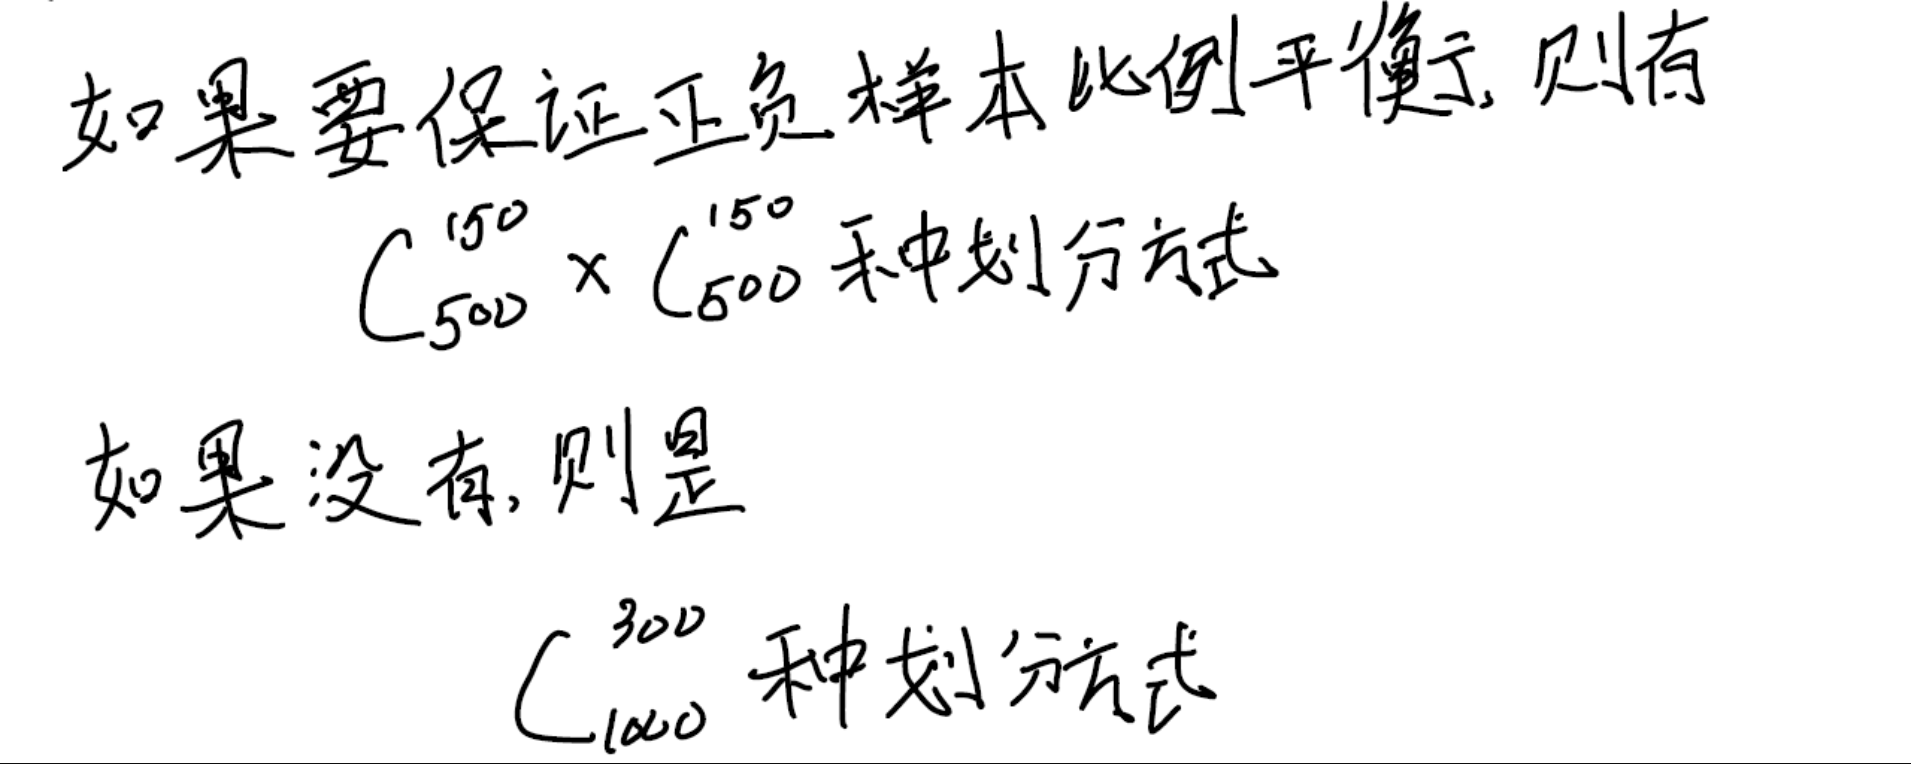 如果要保证正负样本比例平衡,则有
C₅₀₀¹⁵⁰ × C₅₀₀¹⁵⁰ 种划分方式
如果没有,则是
C₁₀₀₀³⁰⁰ 种划分方式